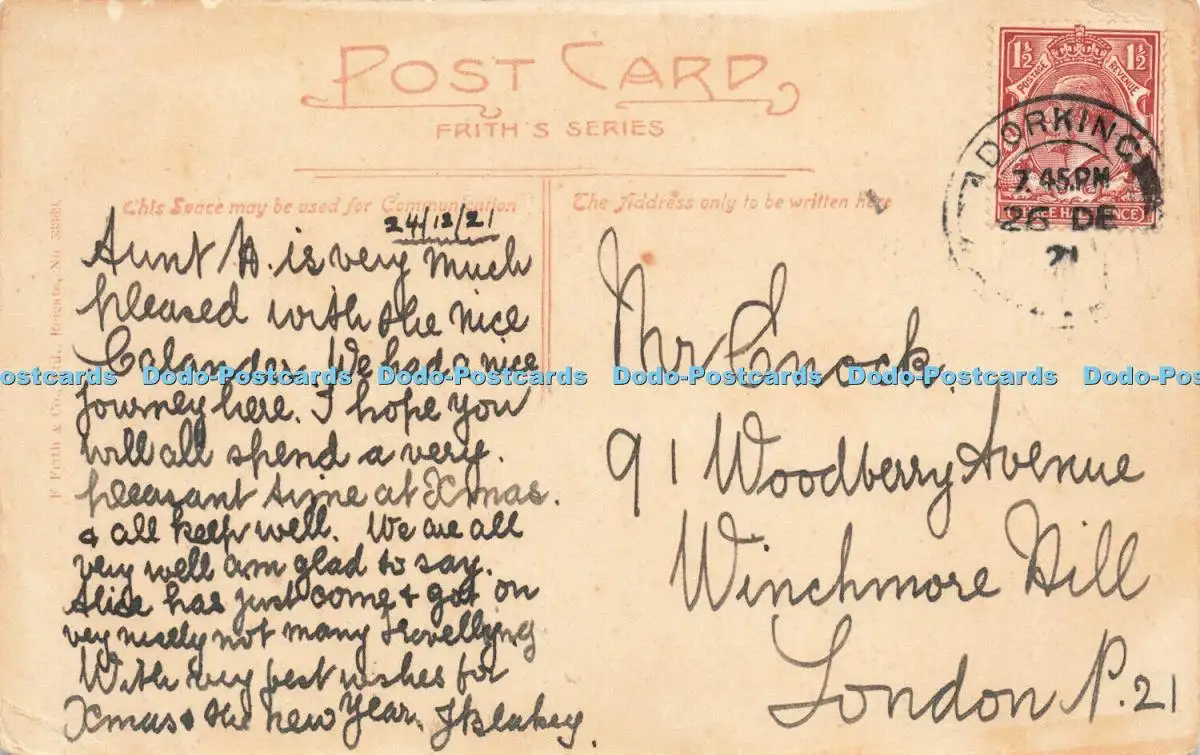 POST CARD
FRITH'S SERIES
This Space may be used for Communication
24/12/21
Aunt A. is very much
pleased with the nice
Calander. We had a nice
journey here. I hope you
will all spend a very.
pleasant time at Xmas.
& all keep well. We are all
very well am glad to say.
Alice has just come & got on
very nicely not many travellying
With very best wishes for
Xmas & the new Year. J Blakey.
The Address only to be written here
Mr Enock.
91 Woodberry Avenue
Winchmore Hill
London N.21
1½ 1½
POSTAGE REVENUE
DORKING
7.45 PM
26 DE
21
F Frith & Co., Ltd., Reigate, No.
Dodo-Postcards Dodo-Postcards Dodo-Postcards Dodo-Postcards Dodo-Postcards Dodo-Postcards